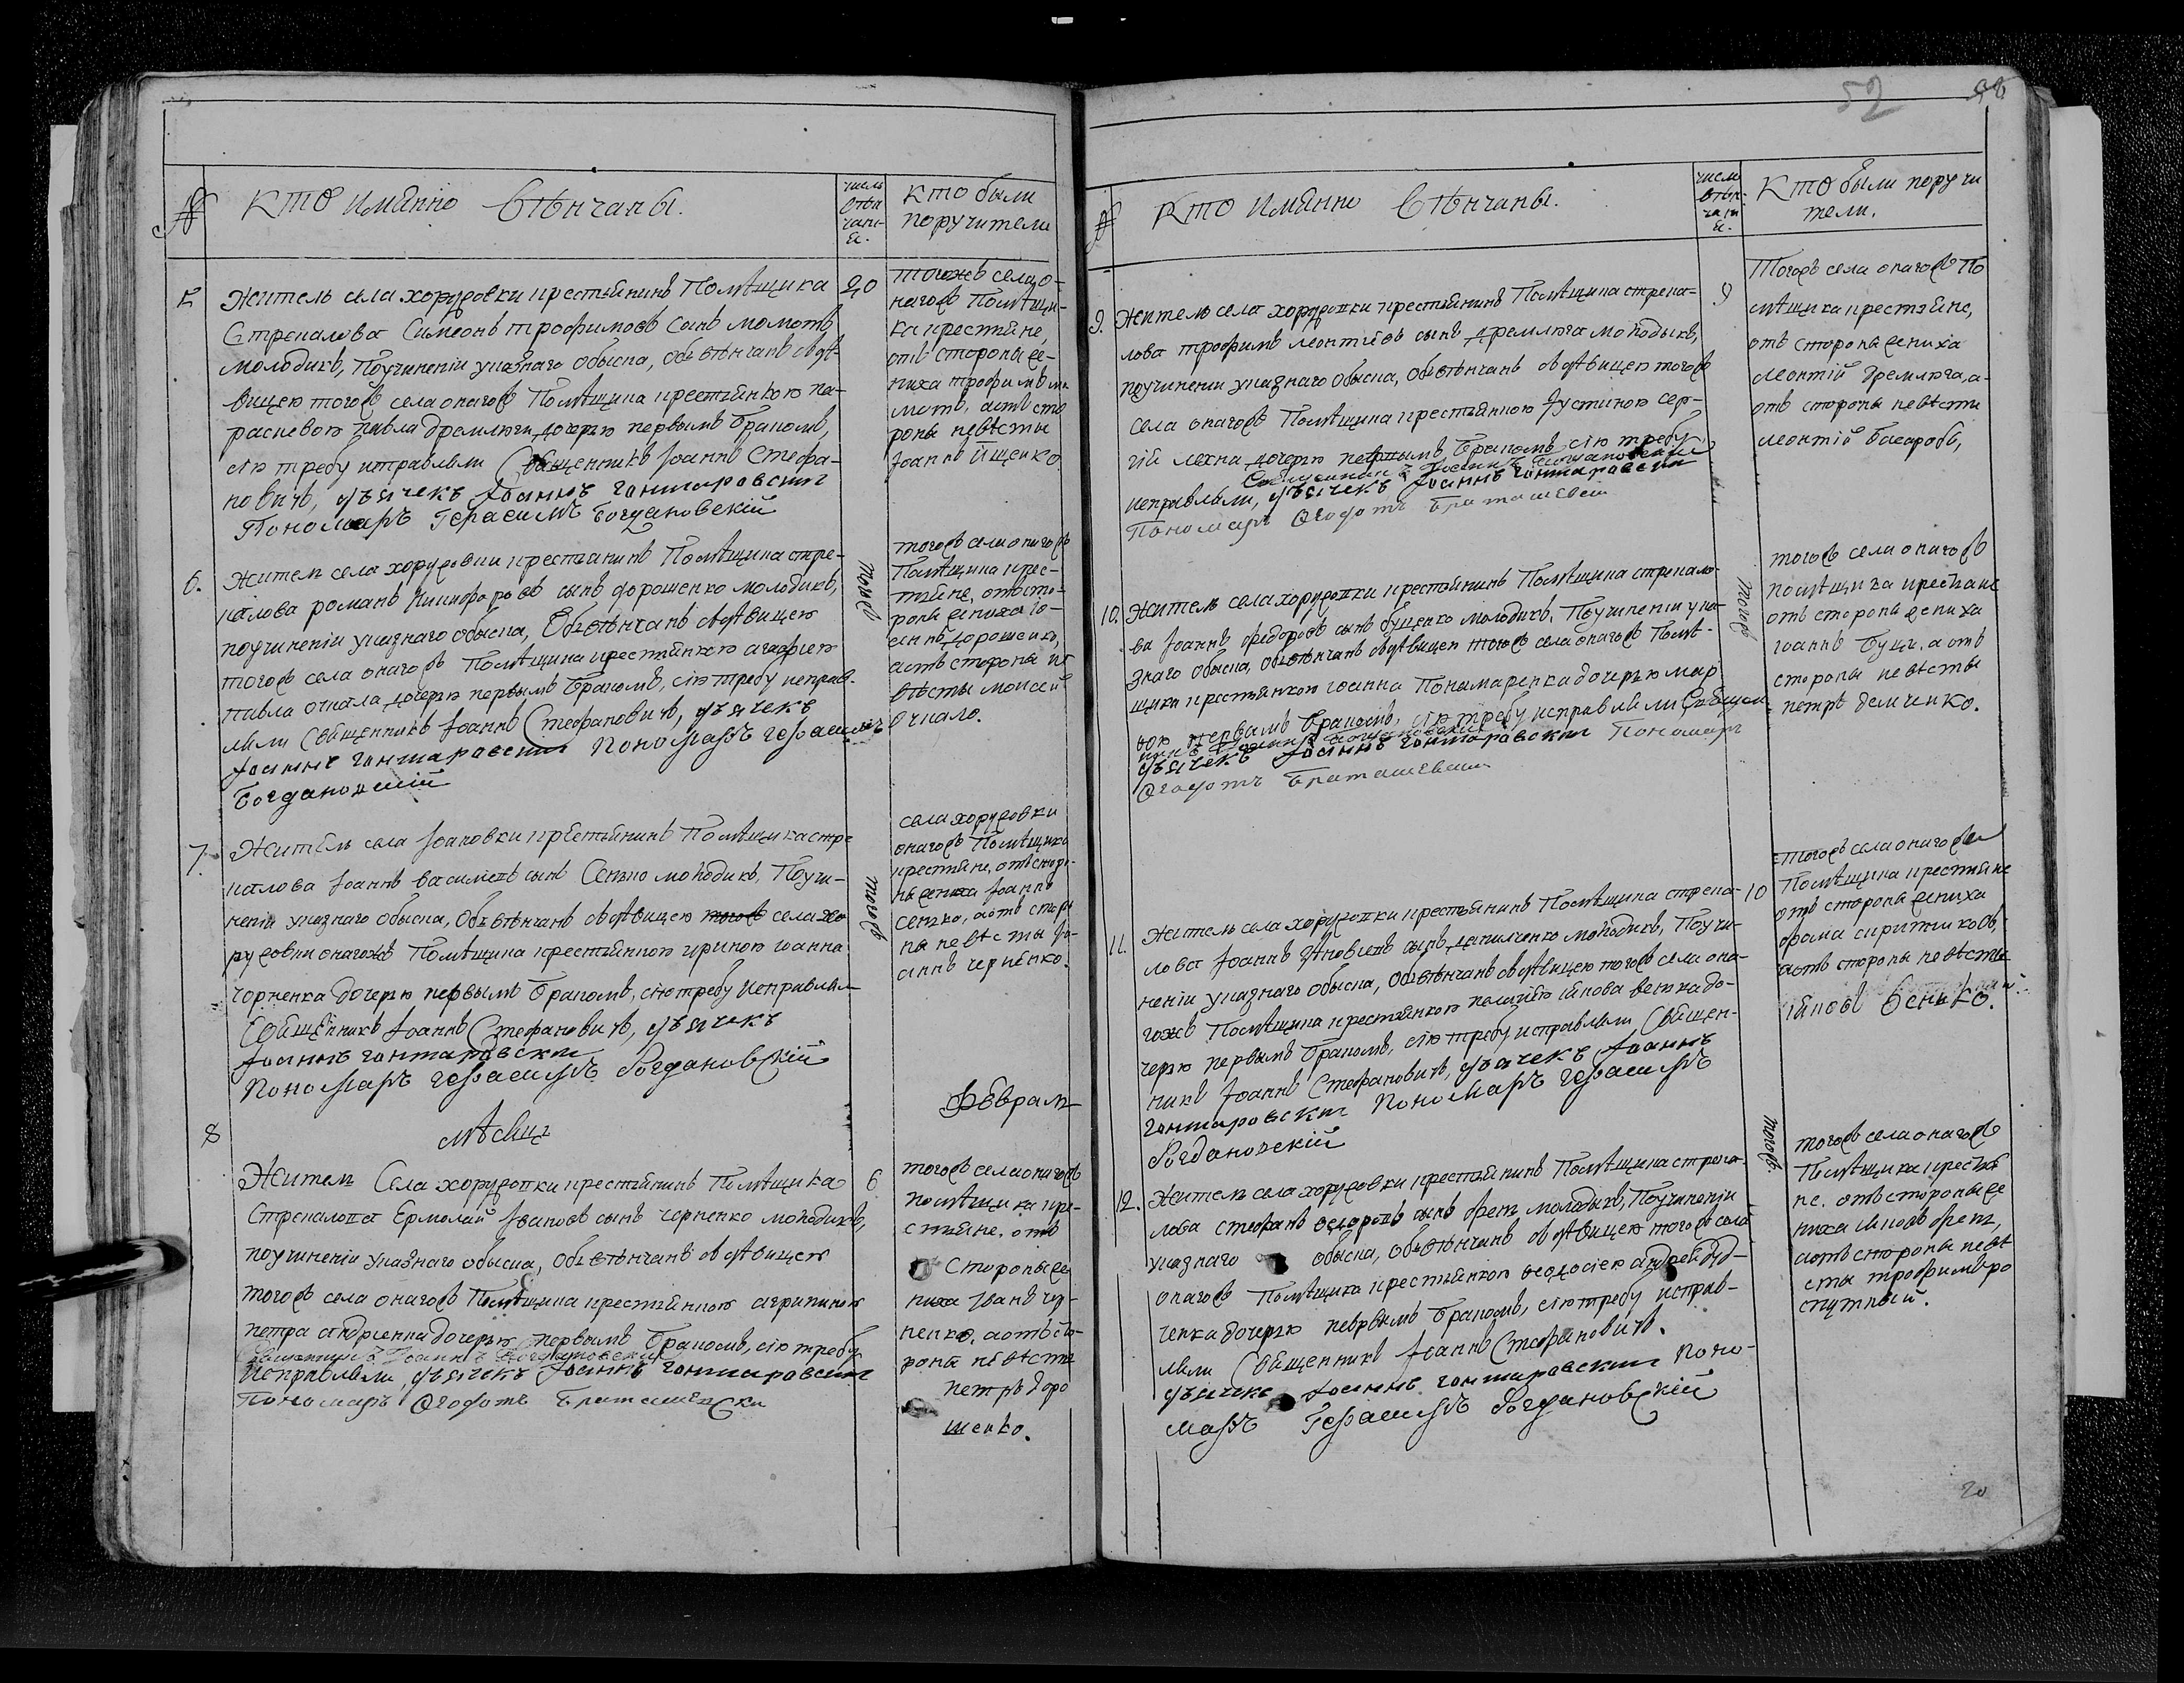 52
98
№
Кто имянно вѣнчаны.
число
вѣн
чані-
я.
Кто были
поручители
5
Житель села хорудовки крестьянинъ Помѣщика
Стрекалова Симеонъ трофимовъ сынъ мамотъ
молодикъ, Поучиненіи указнаго обыска, обвѣнчанъ здѣ-
вицею тогожъ села онагожъ Помѣщика крестьянкою па-
раскевою павла дремлюги дочерью первымъ бракомъ,
сію требу исправляли Священникъ Іоаннъ Стефа-
новичъ, дьячекъ Іоаннъ гонтаровскій
Пономаръ Герасимъ Богдановскій
20
тогожъ села о-
нагожъ Помѣщи-
ка крестьяне,
отъ стороны же-
ниха трофимъ ма
мотъ, аотъ сто
роны невѣсты
Іоаннъ Ищенко
6.
Житель села хорудовки крестьянинъ Помѣщика стре-
калова романъ Никифоровъ сынъ дорошенко молодикъ,
поучиненіи указнаго обыска, обвѣнчанъ здѣвицею
тогожъ села онагожъ Помѣщика крестьянкою агафіею
павла очкала дочерью первымъ бракомъ, сію требу исправ-
ляли Священникъ Іоаннъ Стефановичъ, дьячекъ
Іоаннъ гонтаровскій Пономаръ Герасимъ
Богдановскій
тогожъ
тогожъ села онагожъ
Помѣщика крес-
тьяне, отъ сто-
роны жениха Іо-
аннъ дорошенко,
аотъ стороны не
вѣсты моисей
Очкало.
7.
Житель села Іоановки крестьянинъ Помѣщика стре
калова Іоаннъ василіевъ сынъ Сенко молодикъ, Поучи-
неніи указнаго обыска, обвѣнчанъ здѣвицею тогожъ села хо
рудовки онагожъ Помѣщика крестьянкою ириною іоанна
чорненка дочерью первымъ бракомъ, сію требу исправляли
Священникъ Іоаннъ Стефановичъ, дьячекъ
Іоаннъ гонтаровскій
Пономаръ герасимъ Богдановскій
тогожъ
села хорудовки
онагожъ Помѣщика
крестьяне, отъ сторо-
ны жениха Іоаннъ
сенько, аотъ сторо
ны невѣсты Іо-
аннъ черненко.
8
мѣсяцъ
Февраль
Житель Села хорудовки крестьянинъ Помѣщика
Стрекалова Ермолай Іоановъ сынъ черненко молодикъ,
поучиненіи указнаго обыска, обвѣнчанъ здѣвицею
тогожъ села онагожъ Помѣщика крестьянкою агрипиною
петра андріенка дочерью первымъ бракомъ, сію требу
Священникъ Іоаннъ Богдановскій
исправляли, дьячекъ Іоаннъ гонтаровскій
Пономаръ Ѳеодотъ Браташевски
6
тогожъ села онагожъ
помѣщика кре-
стьяне, отъ
стороны же
ниха Іванъ чор-
ненко, аотъ сто-
роны невѣсты
петръ доро
шенко.
№
Кто имянно вѣнчаны.
число
вѣн-
чані
я.
Кто были поручи
тели.
9.
Житель села хорудовки крестьянинъ Помѣщика стрека-
лова трофимъ леонтіевъ сынъ дремлюга молодикъ,
поучиненіи указнаго обыска, обвѣнчанъ здѣвицею тогожъ
села онагожъ Помѣщика крестьянкою Іустиною сер-
гія лехна дочерью первымъ бракомъ сію требу
Священникъ Іоаннъ Богдановскій
исправляли, дьячекъ Іоаннъ гонтаровскій
Пономаръ Ѳеодотъ Браташевски
9
Тогожъ села онагожъ По
мѣщика крестьяне,
отъ стороны жениха
леонтій дремлюга, а-
отъ стороны невѣсти
леонтій басарабъ,
10.
Житель села хорудовки крестьянинъ Помѣщика стрекало-
ва Іоаннъ федоровъ сынъ буценко молодикъ, Поучиненіи ука-
знаго обыска, обвѣнчанъ здѣвицею тогожъ села онагожъ Помѣ-
щика крестьянкою іоанна Пономаренка дочерью мар
ѳою первымъ бракомъ, сію требу исправляли Священ-
никъ Іоаннъ Богдановскій
дьячекъ Іоаннъ гонтаровскій Пономаръ
Ѳеодотъ Браташевски
тогожъ
тогожъ села онагожъ
помѣщика крестьяне
отъ стороны жениха
іоаннъ буца, а отъ
стороны невѣсты
петръ демченко.
11.
Житель села хорудовки крестьянинъ Помѣщика стрека-
лова Іоаннъ Яковлевъ сынъ данилченко молодикъ, Поучи-
неніи указнаго обыска, обвѣнчанъ здѣвицею тогожъ села она-
гожъ Помѣщика крестьянкою пелагіею іакова венкка до-
черью первымъ бракомъ, сію требу исправляли Священ-
никъ Іоаннъ Стефановичъ, дьячекъ Іоаннъ
гонтаровскій Пономаръ герасимъ
Богдановскій
10
тогожъ села онагожъ
Помѣщика крестьяне
отъ стороны жениха
фома сиритниковъ,
аотъ стороны невѣсты
іаковъ венько.
12.
Житель села хорудовки крестьянинъ Помѣщика стрека-
лова стефанъ ѳедоровъ сынъ френъ молодикъ, Поучиненіи
указнаго обыска, обвѣнчанъ здѣвицею тогожъ села
онагожъ Помѣщика крестьянкою ѳеодосіею андрея дуд-
ченка дочерью первымъ бракомъ, сію требу исправ-
ляли Священникъ Іоаннъ Стефановичъ.
дьячекъ Іоаннъ гонтаровскій Поно-
маръ Герасимъ Богдановскій
тогожъ
тогожъ села онагожъ
Помѣщика крестья
не. отъ стороны же
ниха іаковъ френъ,
аотъ стороны невѣ
сты трофимъ ро
спутный.
20